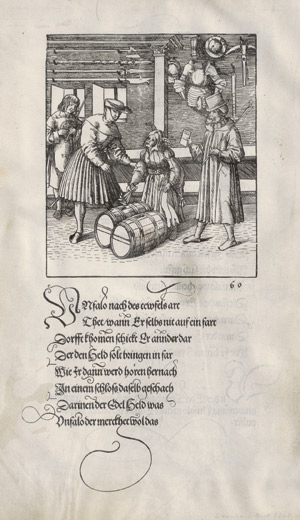 60
Vnfalo nach des teewfels art
Thet / wann Er selbs nit auf ein fart
Dorfft khomen schickt Er ain der dar
Der den Held solt bringen in far
Wie Ir dann werd hören hernach
In einem schloß daselb geschach
Darinnen der Edel Held was
Vnfalo der merckhet wol das